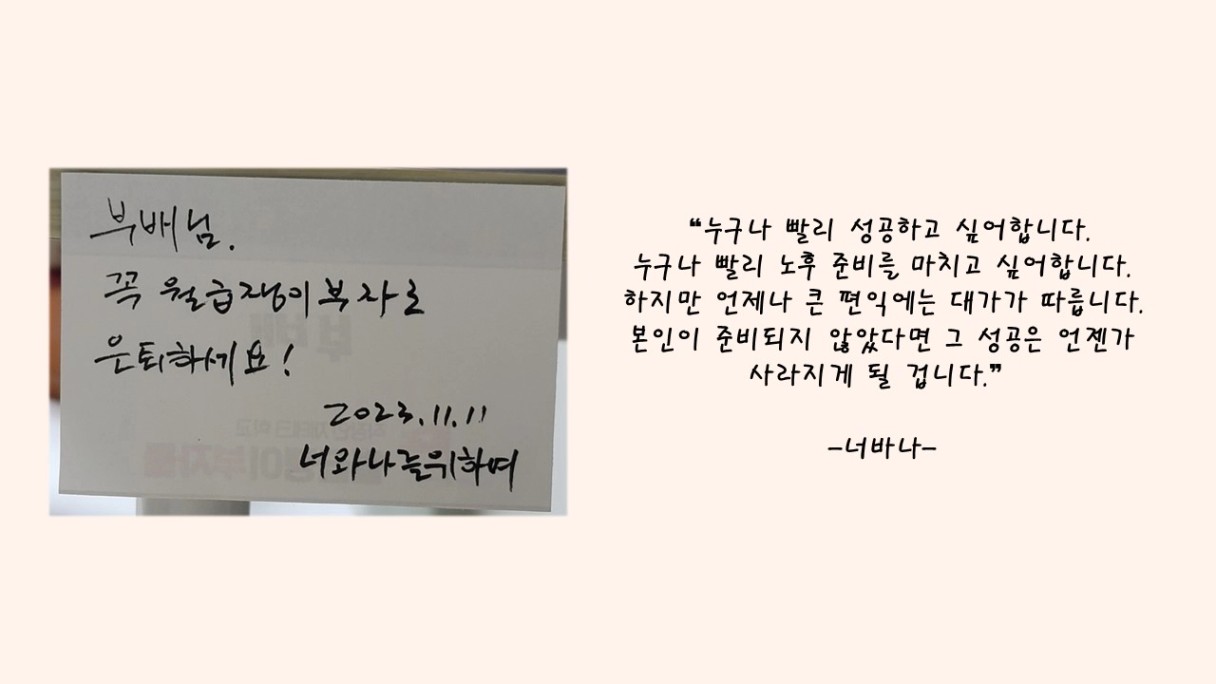 부배님.
꼭 월급쟁이부자로
은퇴하세요!
2023.11.11
너와나를위하여
❝누구나 빨리 성공하고 싶어합니다.
누구나 빨리 노후 준비를 마치고 싶어합니다.
하지만 언제나 큰 편익에는 대가가 따릅니다.
본인이 준비되지 않았다면 그 성공은 언젠가
사라지게 될 겁니다.❞
-너바나-